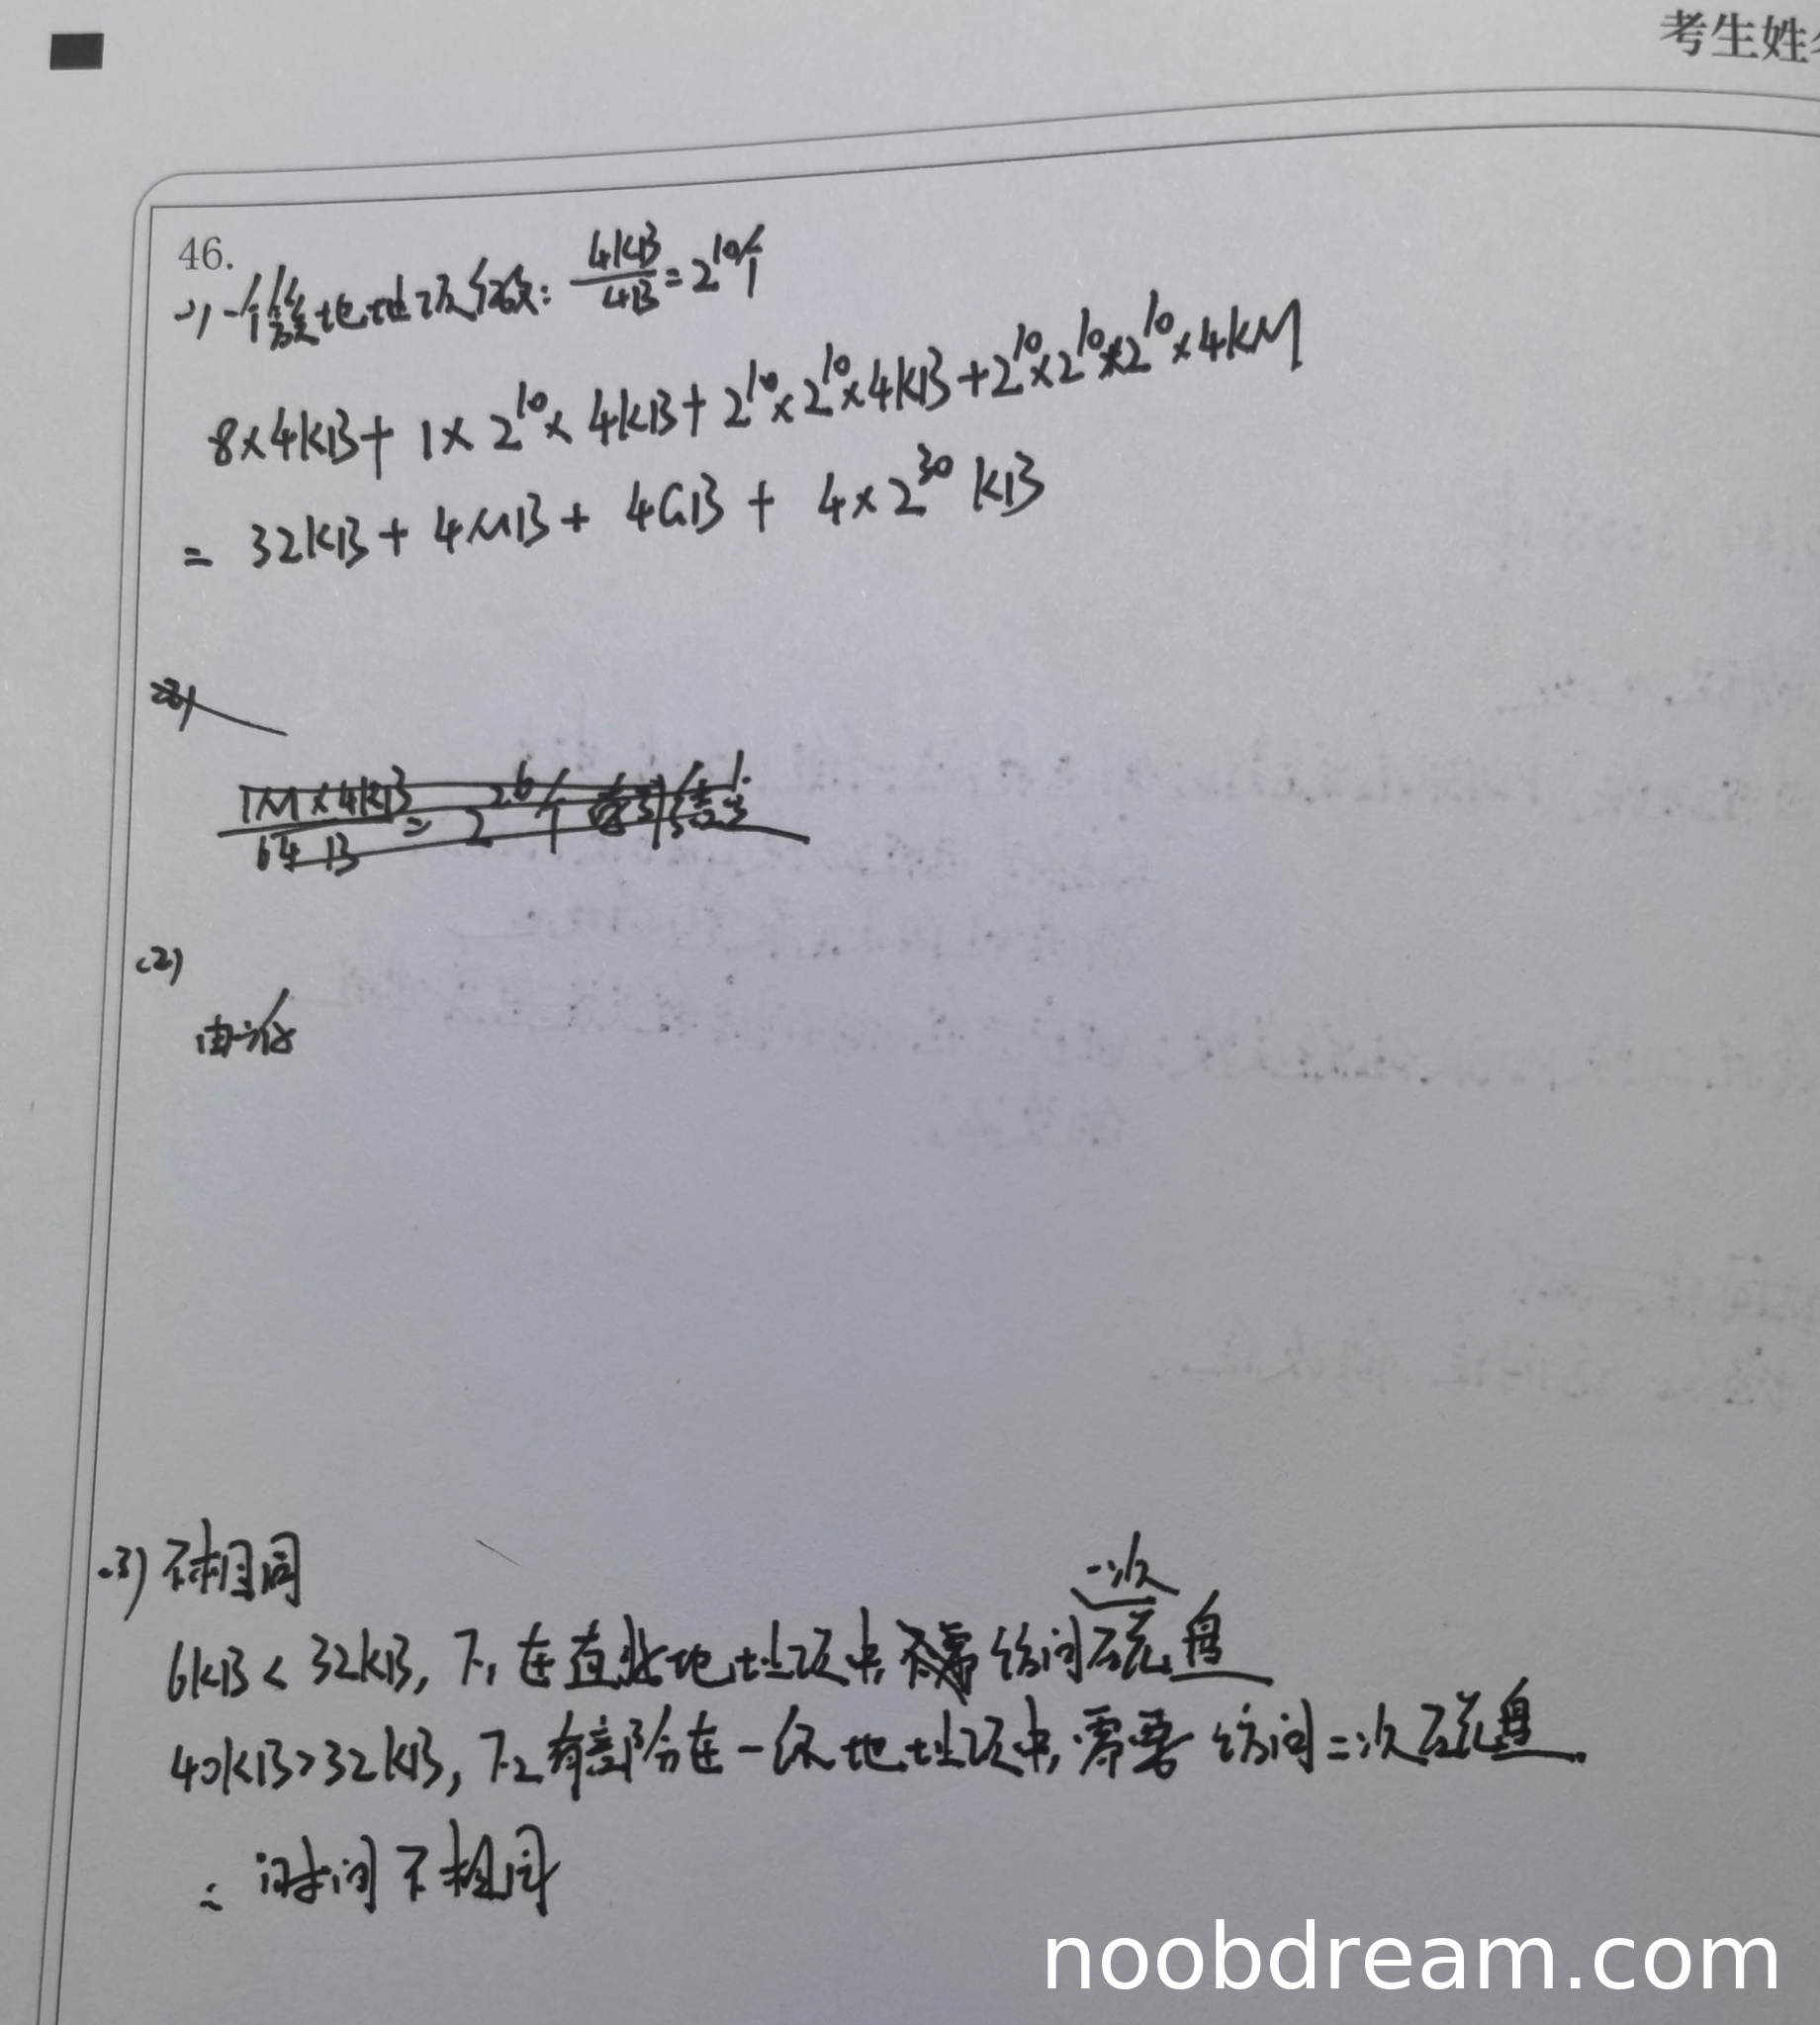 考生姓
46.
(1) 一个簇地址项个数: 4KB/4B = 2^10个
8×4KB + 1×2^10×4KB + 2^10×2^10×4KB + 2^10×2^10×2^10×4KM
= 32KB + 4MB + 4GB + 4×2^30 KB
1M×4KB/64B = 2^26个
(2)
由
(3) 不相同
一次
6KB < 32KB, F1 在直接地址项中, 需 访问磁盘
40KB>32KB, F2 有部分在一级地址项中, 需要 访问二次磁盘.
∴ 时间不相同
noobdream.com